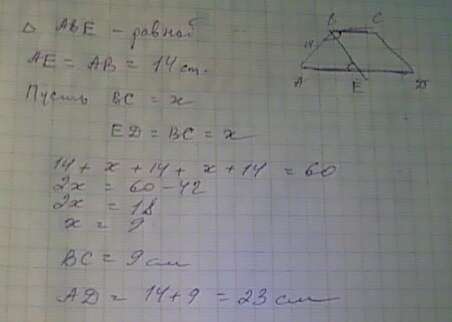 Δ ABE - равноб
AE = AB = 14 cm.
Пусть BC = x
ED = BC = x
14 + x + 14 + x + 14 = 60
2x = 60 - 42
2x = 18
x = 9
BC = 9 см
AD = 14 + 9 = 23 см
B C
14
A E D